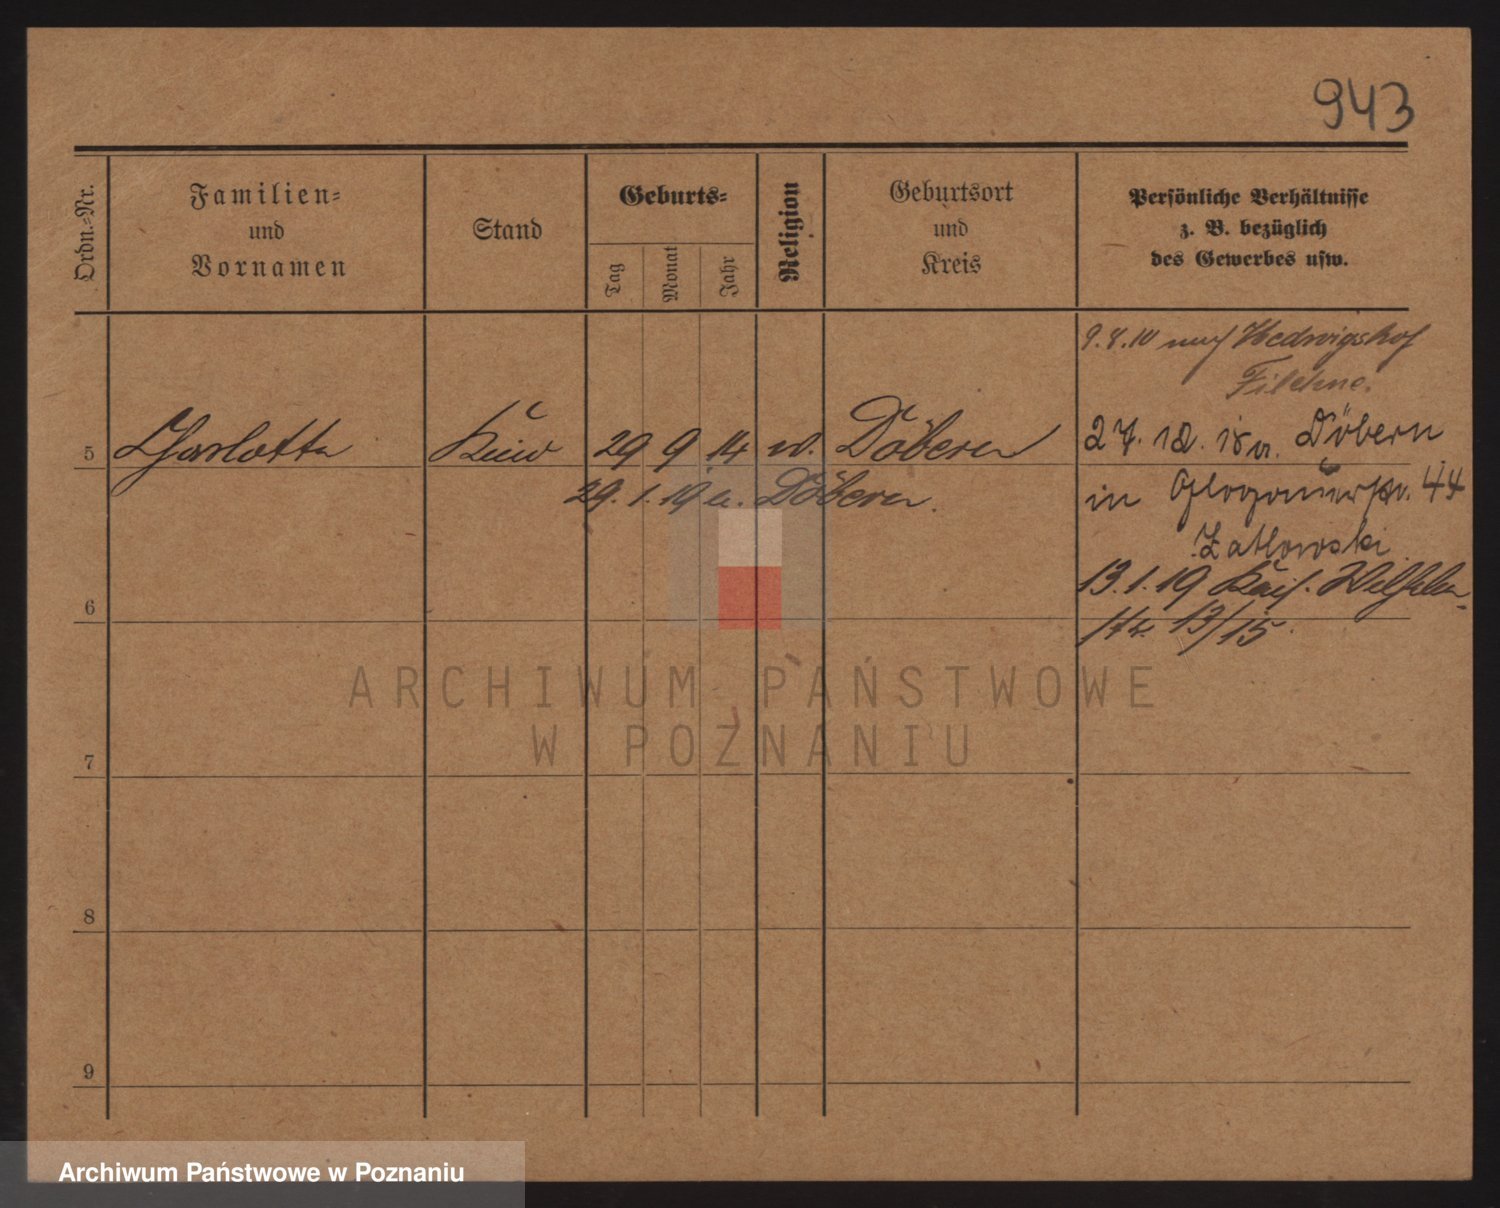 943
Ordn.=Nr.
Familien=
und
Vornamen
Stand
Geburts=
Tag
Monat
Jahr
Religion
Geburtsort
und
Kreis
Persönliche Verhältnisse
z. B. bezüglich
des Gewerbes usw.
9.8.10 nach Hedwigshof
Filehne.
5 Charlotte 29 9 14 w. Döbern
27. 12. 18 v. Döbern
29. 1. 19 a. Döbern.
in Glogauerstr. 44
Zatlowski
13.1.19 Kais. Wilhelm-
6
str. 13/15.
ARCHIWUM PAŃSTWOWE
W POZNANIU
7
8
9
Archiwum Państwowe w Poznaniu